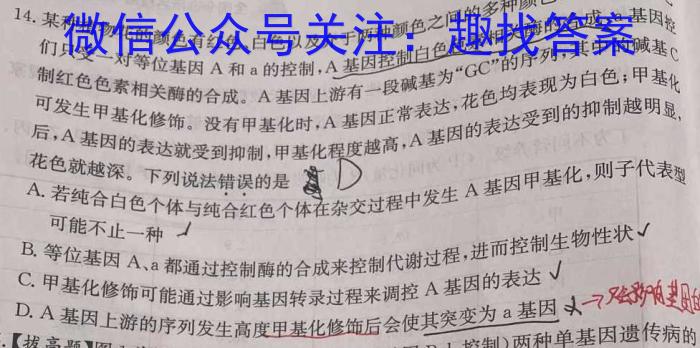 14.某种植物花的颜色有红色、白色以及介于两种颜色之间的多种颜色
微信公众号关注：趣找答案
们只受一对等位基因A和a的控制,A基因控制白色 相关酶的合成 基因控
制红色色素相关酶的合成。A基因上游有一段碱基为“GC”的序列,其中 碱基C
可发生甲基化修饰。没有甲基化时,A基因正常表达,花色均表现为白色;甲基化
后,A基因的表达就受到抑制,甲基化程度越高,A基因的表达受到的抑制越明显,
花色就越深。下列说法错误的是 D
A.若纯合白色个体与纯合红色个体在杂交过程中发生A基因甲基化,则子代表型
可能不止一种 √
B.等位基因A、a都通过控制酶的合成来控制代谢过程,进而控制生物性状 √
C.甲基化修饰可能通过影响基因转录过程来调控A基因的表达 √
D.A基因上游的序列发生高度甲基化修饰后会使其突变为a基因 ×→
【拔高题】 控制)两种单基因遗传病的